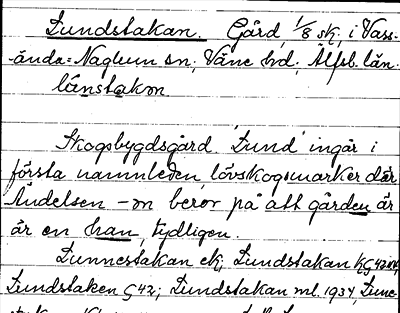 Lundstakan. Gård, 1/8 sk, i Väss-
ända-Naglum sn, Väne hd, Älfsb. län.
lånstakɷn
Skogsbygdsgård. 'Lund' ingår i
första namnleden, lövskogsmarker där
Ändelsen -ɷn beror på att gården är
är en han, tydligen.
Lunnestakan ek, Lundstakan KG 42
Lundstaken G 42; Lundstakan ml. 1934,